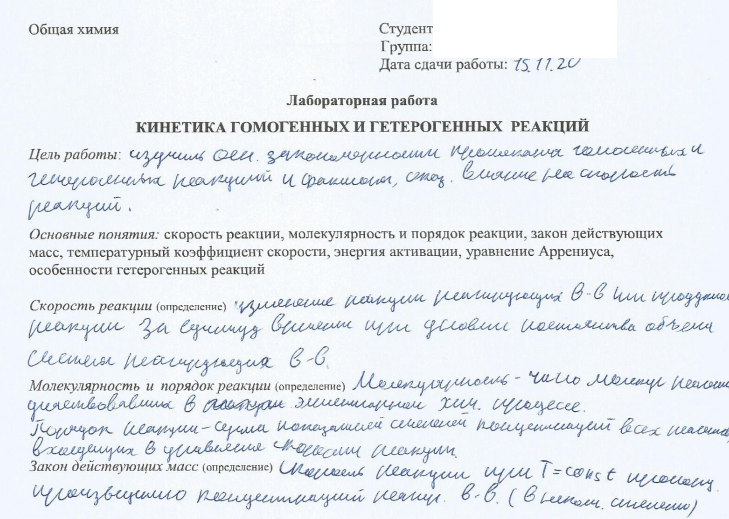 Общая химия
Студент
Группа:
Дата сдачи работы: 15.11.20
Лабораторная работа
КИНЕТИКА ГОМОГЕННЫХ И ГЕТЕРОГЕННЫХ РЕАКЦИЙ
Цель работы: изучить осн. закономерности протекания гомогенных и
гетерогенных реакций и факторы, влияние на скорость
реакций.
Основные понятия: скорость реакции, молекулярность и порядок реакции, закон действующих
масс, температурный коэффициент скорости, энергия активации, уравнение Аррениуса,
особенности гетерогенных реакций
Скорость реакции (определение) изменение реакции реагирующих в-в или
реакции за единицу времени при условии постоянства объема
системы реагирующих в-в.
Молекулярность и порядок реакции (определение) Молекулярность - число молекул
в элементарном хим. процессе.
Порядок реакции - сумма показателей степеней концентраций всех
входящих в уравнение скорости реакции.
Закон действующих масс (определение) Скорость реакции при T=const пропорц.
произведению концентраций реагир. в-в. (в степени)